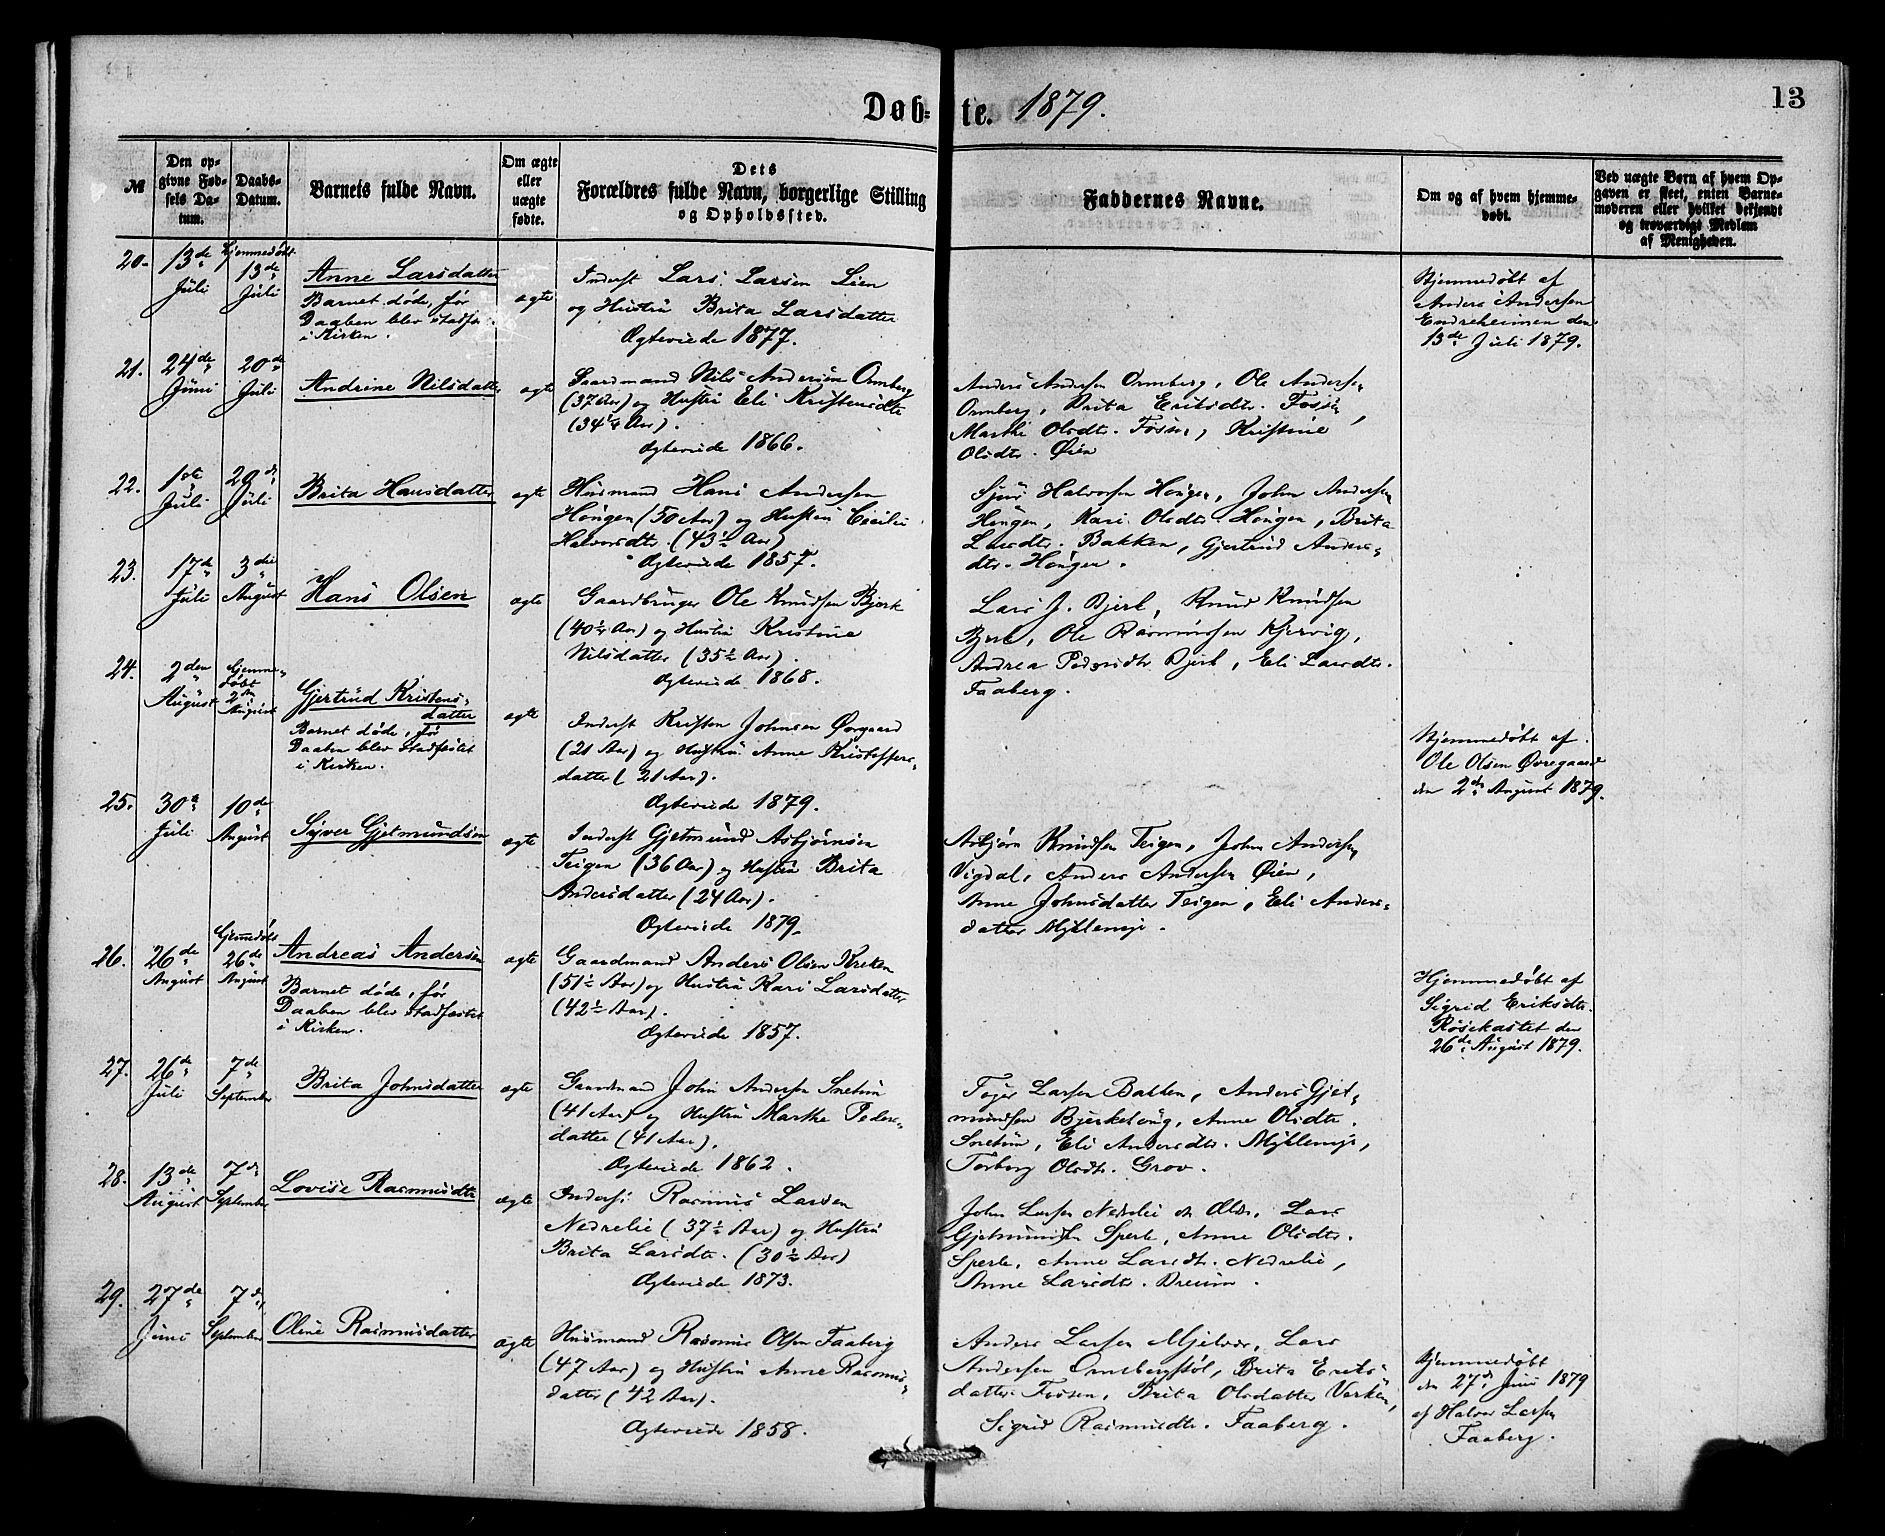 13
Døb- te. 1879.
№
Den op-
givne Fød-
sels Da-
tum.
Daabs-
Datum.
Barnets fulde Navn.
Om ægte
eller
uægte
fødte.
Dets
Forældres fulde Navn, borgerlige Stilling
og Opholdssted.
Faddernes Navne.
Om og af hvem hjemme-
døbt.
Ved uægte Børn af hvem Op-
gaven er skeet, enten Barne-
moderen eller hvilket bekjendt
og troværdigt Medlem
af Menigheden.
20.
13de
Juli
Hjemmedøbt
13de
Juli
Anne Larsdatter
Barnet døde, før
Daaben blev stadfæ
i Kirken.
ægte
Inderst Lars Larsen Lien
og Hustru Brita Larsdatter
Ægteviede 1877.
Hjemmedøbt af
Anders Andersen
Endreheimen den
13de Juli 1879.
21.
24de
Juni
20de
Juli
Andrine Nilsdatter
ægte
Gaardmand Nils Andersen Ormberg
(37 Aar) og Hustru Eli Kristensdtr
(34½ Aar).
Ægteviede 1866.
Anders Andersen Ormberg, Ole Andersen
Ormberg, Brita Eriksdtr. Fossen,
Marthe Olsdtr. Fossen, Kristine
Olsdtr. Øien
22.
1ste
Juli
20de
Juli
Brita Hansdatter
ægte
Husmand Hans Andersen
Haugen (50 Aar) og Hustru Cecilie
Halvorsdtr. (43½ Aar)
Ægteviede 1857.
Sjur Halvorsen Haugen, John Andersen
Haugen, Kari Olsdtr. Haugen, Brita
Larsdtr. Bakken, Gjertrud Anders-
dtr. Haugen.
23.
17de
Juli
3die
August
Hans Olsen
ægte
Gaardbruger Ole Knudsen Bjerk
(40½ Aar) og Hustru Kristine
Nilsdatter (35½ Aar).
Ægteviede 1868.
Lars J. Bjerk, Knud Knudsen
Bjerk, Ole Rasmussen Kjervig,
Andrea Pedersdtr Bjerk, Eli Larsdtr.
Faaberg.
24.
2den
August
Hjemme-
døbt
2den
August
Gjertrud Kristens-
datter
Barnet døde, før
Daaben blev stadfæstet
i Kirken.
ægte
Inderst Kristen Johnsen Øvregaard
(21 Aar) og Hustru Anne Kristoffers-
datter (21 Aar).
Ægteviede 1879.
Hjemmedøbt af
Ole Olsen Øvregaard
den 2den August 1879.
25.
30te
Juli
10de
August
Syver Gjetmundsen
ægte
Inderst Gjetmund Asbjørnsen
Teigen (36 Aar) og Hustru Brita
Andersdatter (24 Aar).
Ægteviede 1879.
Asbjørn Knudsen Teigen, John Andersen
Vigdal, Anders Andersen Øien,
Anne Johnsdatter Teigen, Eli Anders-
datter Myklemyr.
26.
26de
August
Hjemmedøbt
26de
August
Andreas Andersen
Barnet døde, før
Daaben blev stadfæstet
i Kirken.
ægte
Gaardmand Anders Olsen Kreken
(51½ Aar) og Hustru Kari Larsdatter
(42½ Aar).
Ægteviede 1857.
Hjemmedøbt af
Sigrid Eriksdtr.
Røsekastet den
26de August 1879.
27.
26de
Juli
7de
September
Brita Johnsdatter
ægte
Gaardmand John Andersen Snetun
(41 Aar) og Hustru Marthe Peders-
datter (41 Aar).
Ægteviede 1862.
Tøger Larsen Bakken, Anders Gjet-
mundsen Bjerkehaug, Anne Olsdtr.
Snetun, Eli Andersdtr. Myklemyr,
Torborg Olsdtr. Grov.
28.
13de
August
7de
September
Lovise Rasmusdtr
ægte
Inderst Rasmus Larsen
Nedrelie (37½ Aar) og Hustru
Brita Larsdtr. (30½ Aar)
Ægteviede 1873.
John Larsen Nedrelie Lars
Gjetmundsen Sperle, Anne Olsdtr.
Sperle, Anne Larsdtr. Nedrelie,
Anne Larsdtr. Breum.
29.
27de
Juni
7de
September
Oline Rasmusdatter
ægte
Husmand Rasmus Olsen Faaberg
(47 Aar) og Hustru Anne Rasmus-
datter (42 Aar).
Ægteviede 1858.
Anders Larsen Mjelvær, Lars
Andersen Ormbergstøl, Brita Eriks-
datter Fossen, Brita Olsdatter
Sigrid Rasmusdtr. Faaberg.
Hjemmedøbt
den 27de Juni 1879
af Halvor Larsen
Faaberg.